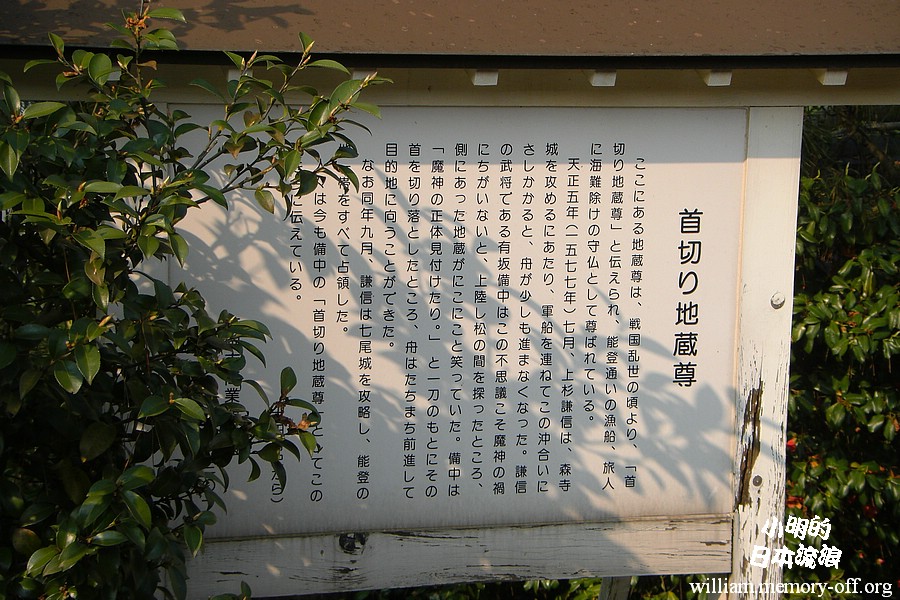 首切り地蔵尊
ここにある地蔵尊は、戦国乱世の頃より、「首
切り地蔵尊」と伝えられ、能登通いの漁船、旅人
に海難除けの守仏として尊ばれている。
天正五年(一五七七年)七月、上杉謙信は、森寺
城を攻めるにあたり、軍船を連ねてこの沖合いに
さしかかると、舟が少しも進まなくなった。謙信
の武将である有坂備中はこの不思議こそ魔神の禍
にちがいないと、上陸し松の間を探ったところ、
側にあった地蔵がにこにこと笑っていた。備中は
「魔神の正体見付けたり。」と一刀のもとにその
首を切り落としたところ、舟はたちまち前進して
目的地に向うことができた。
なお同年九月、謙信は七尾城を攻略し、能登の
帯をすべて占領した。
は今も備中の「首切り地蔵尊」と てこの
に伝えている。
から)
業
小明的
日本流浪
william.memory-off.org